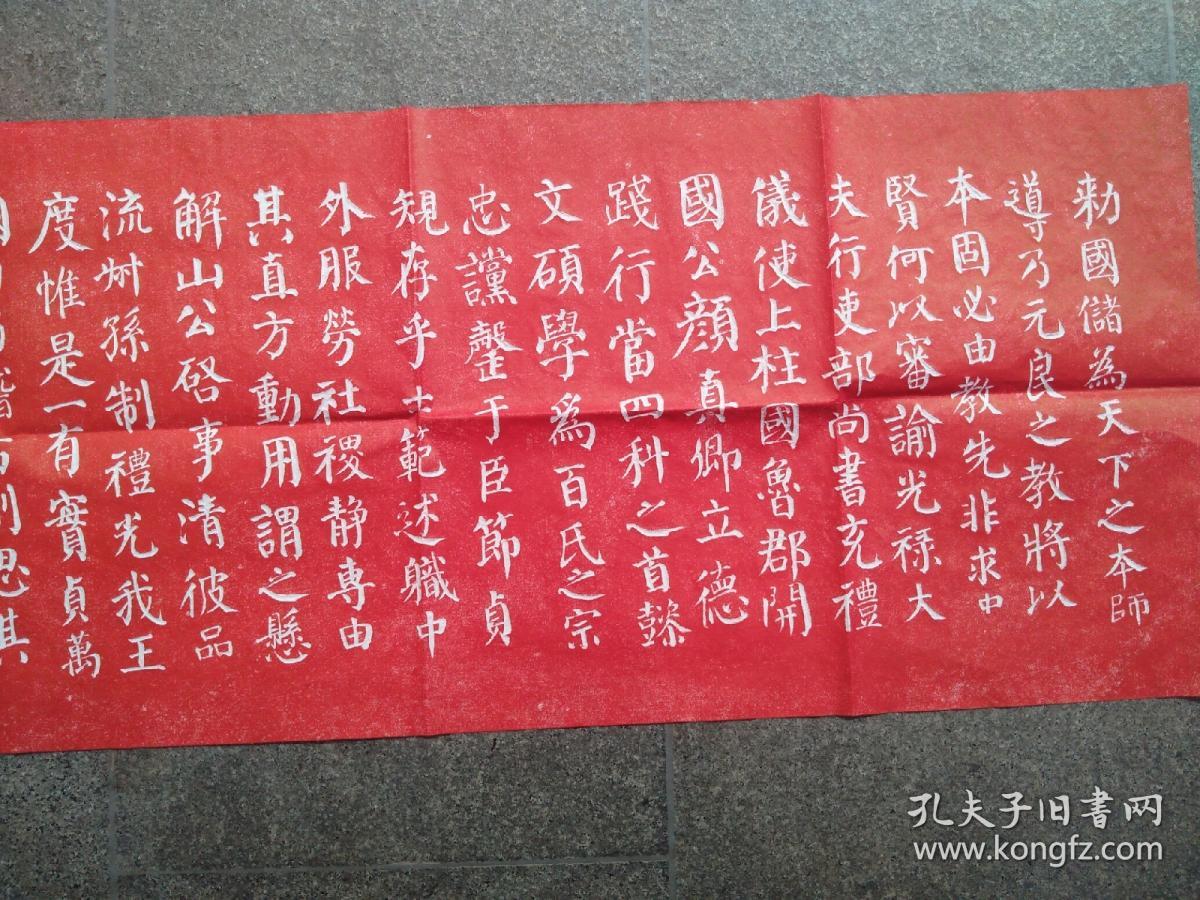 勅國儲為天下之本師
導乃元良之教將以
本固必由教先非求中
賢何以審諭光祿大
夫行吏部尚書充禮
儀使上柱國魯郡開
國公顏真卿立德
踐行當四科之首懿
文碩學為百氏之宗
忠讜罄于臣節貞
規存乎士範述職中
外服勞社稷靜專由
其直方動用謂之懸
解山公啓事清彼品
流叔孫制禮光我王
度惟是一有實貞萬
則思其
孔夫子旧书网
www.kongfz.com